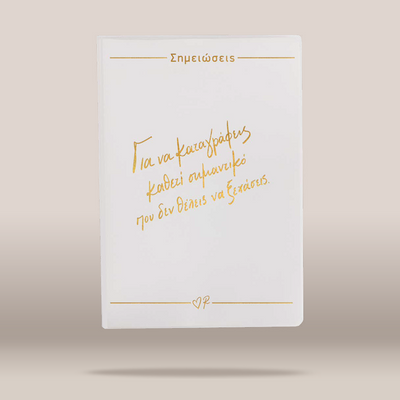 Σημειώσεις
Για να καταγράφεις
καθετί σημαντικό
που δεν θέλεις να ξεχάσεις.